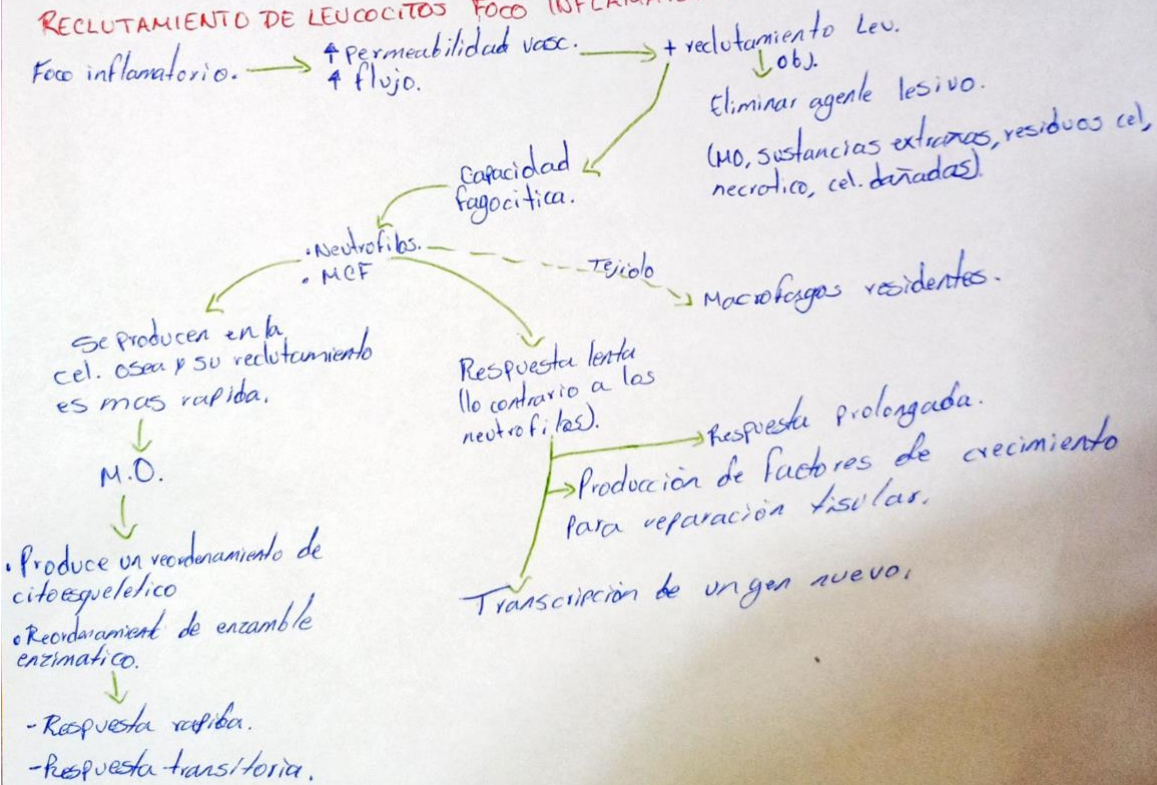 RECLUTAMIENTO DE LEUCOCITOS FOCO
Foco inflamatorio.
↑ permeabilidad vasc.
↑ flujo.
+ reclutamiento Leu.
obj.
Eliminar agente lesivo.
(MO, sustancias extrañas, residuos cel,
necrotico, cel. dañadas).
Capacidad
fagocitica.
• Neutrofilos.
• MCF
Tejido
Macrofagos residentes.
Se producen en la
cel. osea y su reclutamiento
es mas rapida.
M.O.
• Produce un reordenamiento de
citoesqueletico
• Reordenamient de enzamble
enzimatico.
- Respuesta rapiba.
- Respuesta transitoria.
Respuesta lenta
(lo contrario a los
neutrofilos).
Respuesta prolongada.
Producción de factores de crecimiento
para reparación tisular.
Transcripción de un gen nuevo.